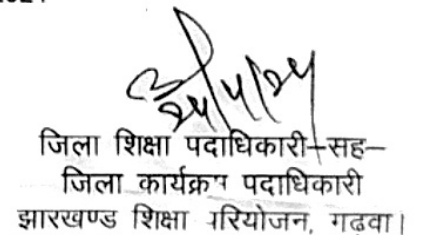 जिला शिक्षा पदाधिकारी-सह-
जिला कार्यक्रम पदाधिकारी
झारखण्ड शिक्षा परियोजन, गढवा।